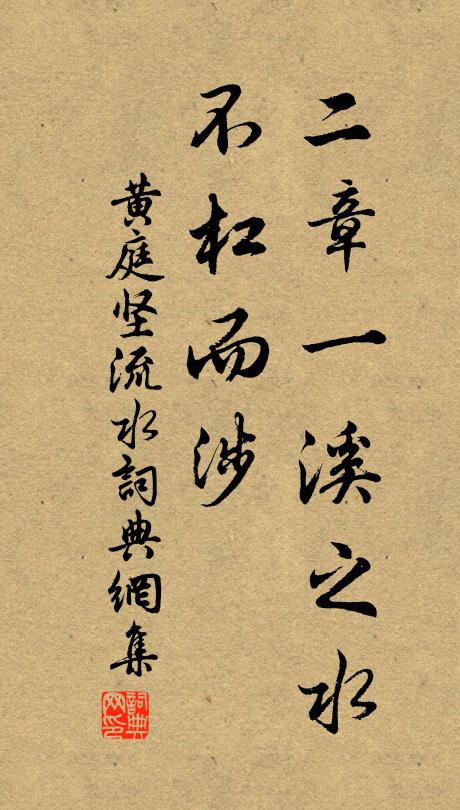 二章一溪之水
不杠而涉
黄庭坚流水詞典網集
詞典
网印